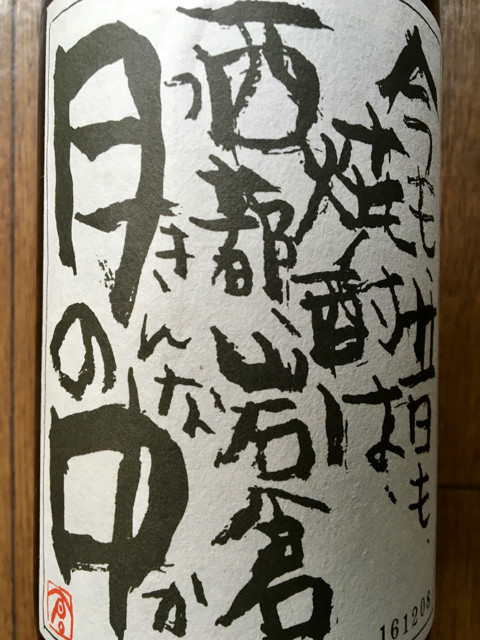 今も、昔も、
焼酎は、
西都、岩倉
つきんなか
月の中
161208